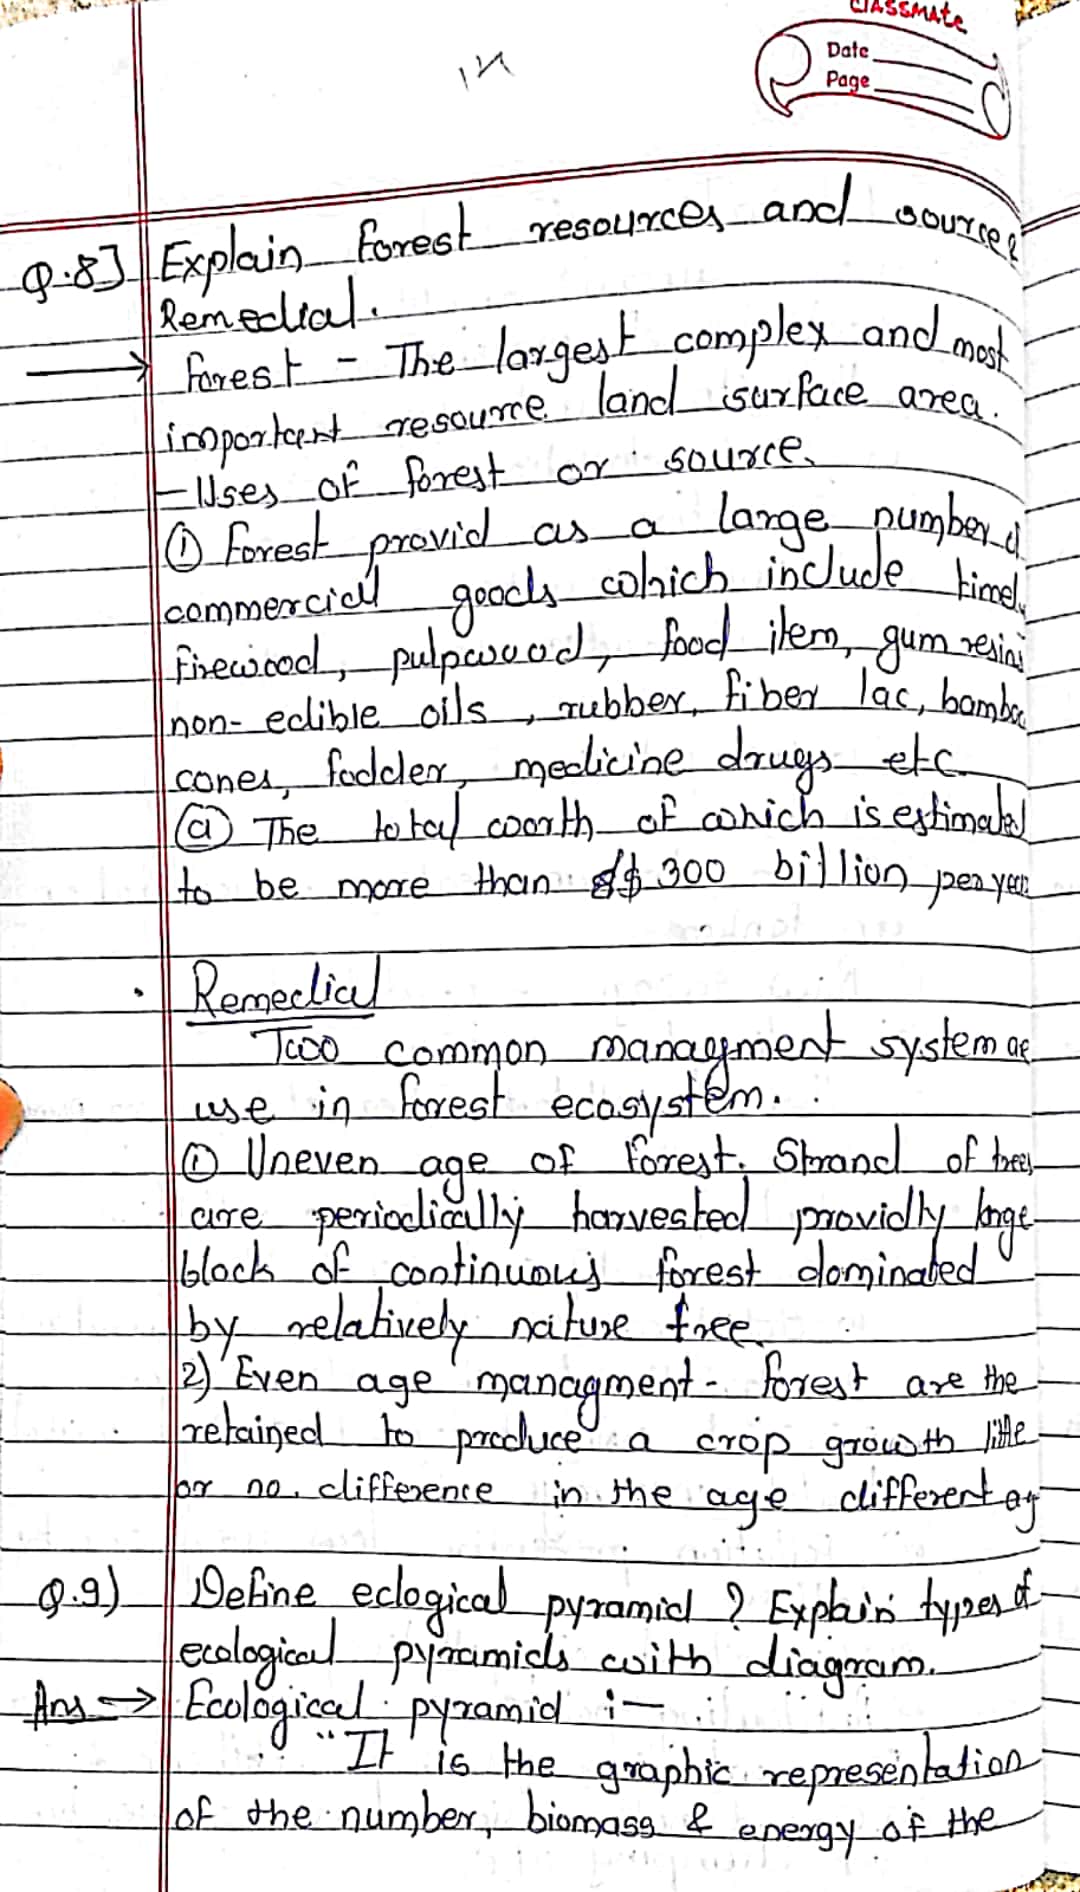 classmate
Date
Page
Q.8] Explain forest resources and source &
Remedial.
→ forest - The largest complex and most
important resource land surface area.
- Uses of forest or source.
① forest provid as a large number of
commercial goods which include
firewood, pulpwood, food item, gum resins
non-edible oils, rubber, fiber lac, bamboo
cones, fodder, medicine drugs etc.
ⓐ The total worth of which is estimated
to be more than $ 300 billion per year
Remedial
Two common managment system are
use in forest ecosystem.
① Uneven age of forest. Strand of trees
are periodically harvested providly large
block of continuous forest dominated
by relatively nature tree.
2) Even age managment - forest are the
retained to produce a crop growth little
or no difference in the age different age
Q.9) Define eclogical pyramid ? Explain types of
ecological pyramids with diagram.
Ans → Ecological pyramid :-
"It is the graphic representation
of the number, biomass & energy of the